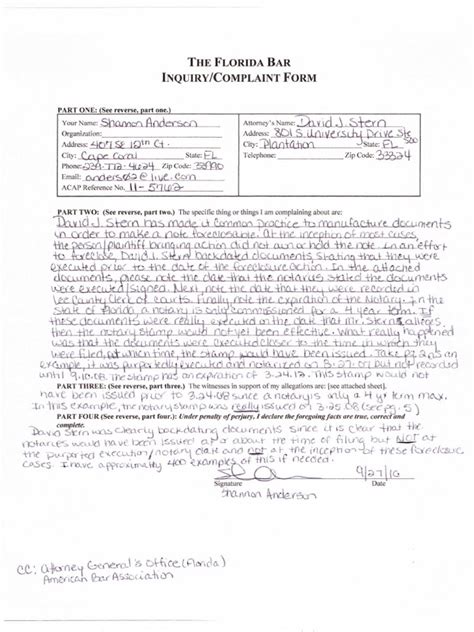 THE FLORIDA BAR
INQUIRY/COMPLAINT FORM
PART ONE: (See reverse, part one.)
Your Name: Shannon Anderson
Organization:
Address: 407 SE 12th Ct.
City: Cape Coral State: FL
Phone: 239-772-4624 Zip Code: 33990
Email: anders62@live.com
ACAP Reference No. 11-5762
Attorney's Name: David J. Stern
Address: 801 S. University Drive Ste 500
City: Plantation State: FL
Telephone: Zip Code: 33324
PART TWO: (See reverse, part two.) The specific thing or things I am complaining about are:
David J. Stern has made it common practice to manufacture documents
in order to make a note foreclosable. At the inception of most cases,
the person/plaintiff bringing action did not own or hold the note. In an effort
to foreclose, David J. Stern backdated documents stating that they were
executed prior to the date of the foreclosure action. In the attached
documents, please note the date that the notaries stated the documents
were executed/signed. Next note the date that they were recorded in
Lee County Clerk of Courts. Finally note the expiration of the Notary. In the
State of Florida, a notary is only commissioned for a 4 year term. If
these documents were really executed on the date that Mr. Stern alleges
then, the stamp would not yet been effective. What really happened
was that the documents were executed closer to the time in which they
were filed, at which time, the stamp would have been issued. Take pg as an
example, it was purportedly executed and notarized on 3-27-07 but not recorded
until 9-10-08. The stamp has an expiration of 3-24-12. This stamp would not
PART THREE: (See reverse, part three.) The witnesses in support of my allegations are: [see attached sheet].
have been issued prior to 3-24-08 since a notary is only a 4 yr term max.
In this example, the notary stamp was really issued of 3-25-08 (see pg. 5)
PART FOUR (See reverse, part four.): Under penalty of perjury, I declare the foregoing facts are true, correct and
complete.
David Stern was clearly backdating documents since it is clear that the
notaries would have been issued at or about the time of filing but NOT at
the purported execution/notary date and not at the inception of these foreclosure
cases. I have approximately 400 examples of this if needed.
9/27/10
Signature Date
Shannon Anderson
CC: Attorney General's Office (Florida)
American Bar Association